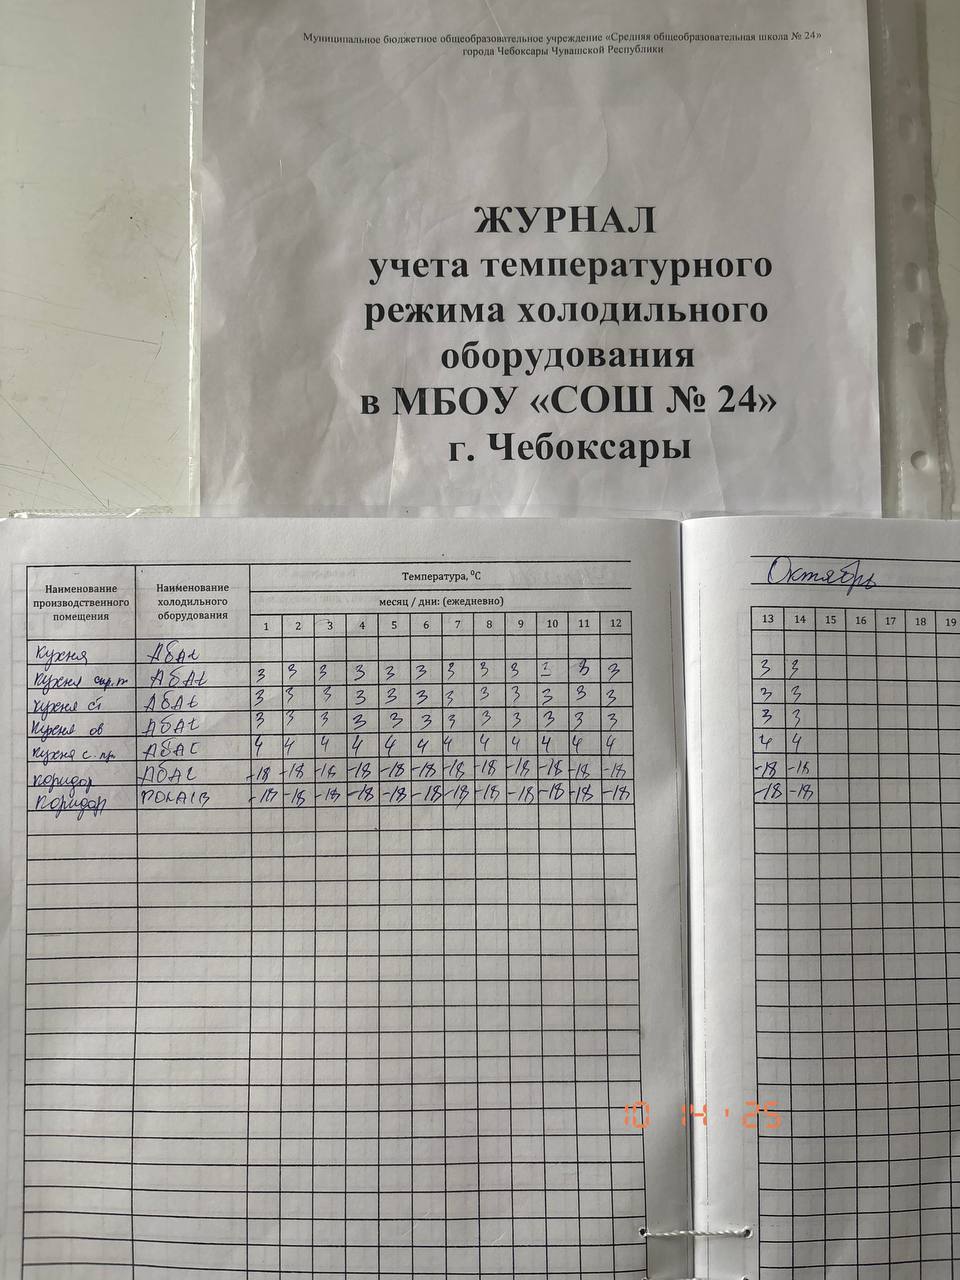 Муниципальное бюджетное общеобразовательное учреждение «Средняя общеобразовательная школа № 24»
города Чебоксары Чувашской Республики
ЖУРНАЛ
учета температурного
режима холодильного
оборудования
в МБОУ «СОШ № 24»
г. Чебоксары
Наименование производственного помещения
Наименование холодильного оборудования
Температура, °С
месяц / дни: (ежедневно)
Октябрь
1 2 3 4 5 6 7 8 9 10 11 12 13 14 15 16 17 18 19
Кухня Абат
Кухня Абат 3 3 3 3 3 3 3 3 3 3 3 3 3 3
Кухня ст Абат 3 3 3 3 3 3 3 3 3 3 3 3 3 3
Кухня ов Абат 3 3 3 3 3 3 3 3 3 3 3 3 3 3
Кухня с. пр. Абат 4 4 4 4 4 4 4 4 4 4 4 4 4 4
Коридор Абат -18 -18 -18 -18 -18 -18 -18 -18 -18 -18 -18 -18 -18 -18
Коридор POLAIR -18 -18 -18 -18 -18 -18 -18 -18 -18 -18 -18 -18 -18 -18
10 14 ' 25